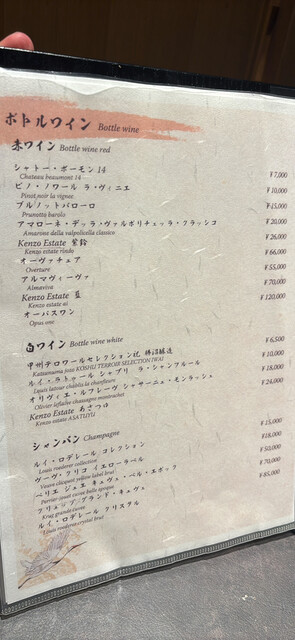 ボトルワイン Bottle wine
赤ワイン Bottle wine red
シャトー・ボーモン 14 ¥7,000
Chateau beaumont 14
ピノ・ノワール ラ・ヴィニエ ¥10,000
Pinot noir la vignee
プルノットバローロ ¥15,000
Prunotto barolo
アマローネ・デッラ・ヴァルポリチェッラ・クラッシコ ¥20,000
Amarone della valpolicella classico
Kenzo Estate 紫鈴 ¥26,000
Kenzo estate rindo
オーヴァチュア ¥66,000
Overture
アルマヴィーヴァ ¥55,000
Almaviva
Kenzo Estate 藍 ¥70,000
Kenzo estate ai
オーパスワン ¥120,000
Opus one
白ワイン Bottle wine white
甲州テロワールセレクション祝 勝沼醸造 ¥6,500
Katsunuma jozo KOSHU TERROIR SELECTION IWAI
ルイ・ラトゥール シャブリ ラ・シャンフルール ¥10,000
Louis latour chablis la chanfleure
オリヴィエ・ルフレーヴ シャサーニュ・モンラッシェ ¥18,000
Olivier leflaive chassagne montrachet
Kenzo Estate あさつゆ ¥24,000
Kenzo estate ASATSUYU
シャンパン Champagne
ルイ・ロデレール コレクション ¥15,000
Louis roederer collection
ヴーヴ・クリコ イエローラベル ¥18,000
Veuve clicquot yellow label brut
ペリエ ジュエ キュヴェ・ベル・エポック ¥50,000
Perrier-jouet cuvee belle epoque
クリュッグ グランド・キュヴェ ¥70,000
Krug grande cuvee
ルイ・ロデレール クリスタル ¥85,000
Louis roederer crystal brut